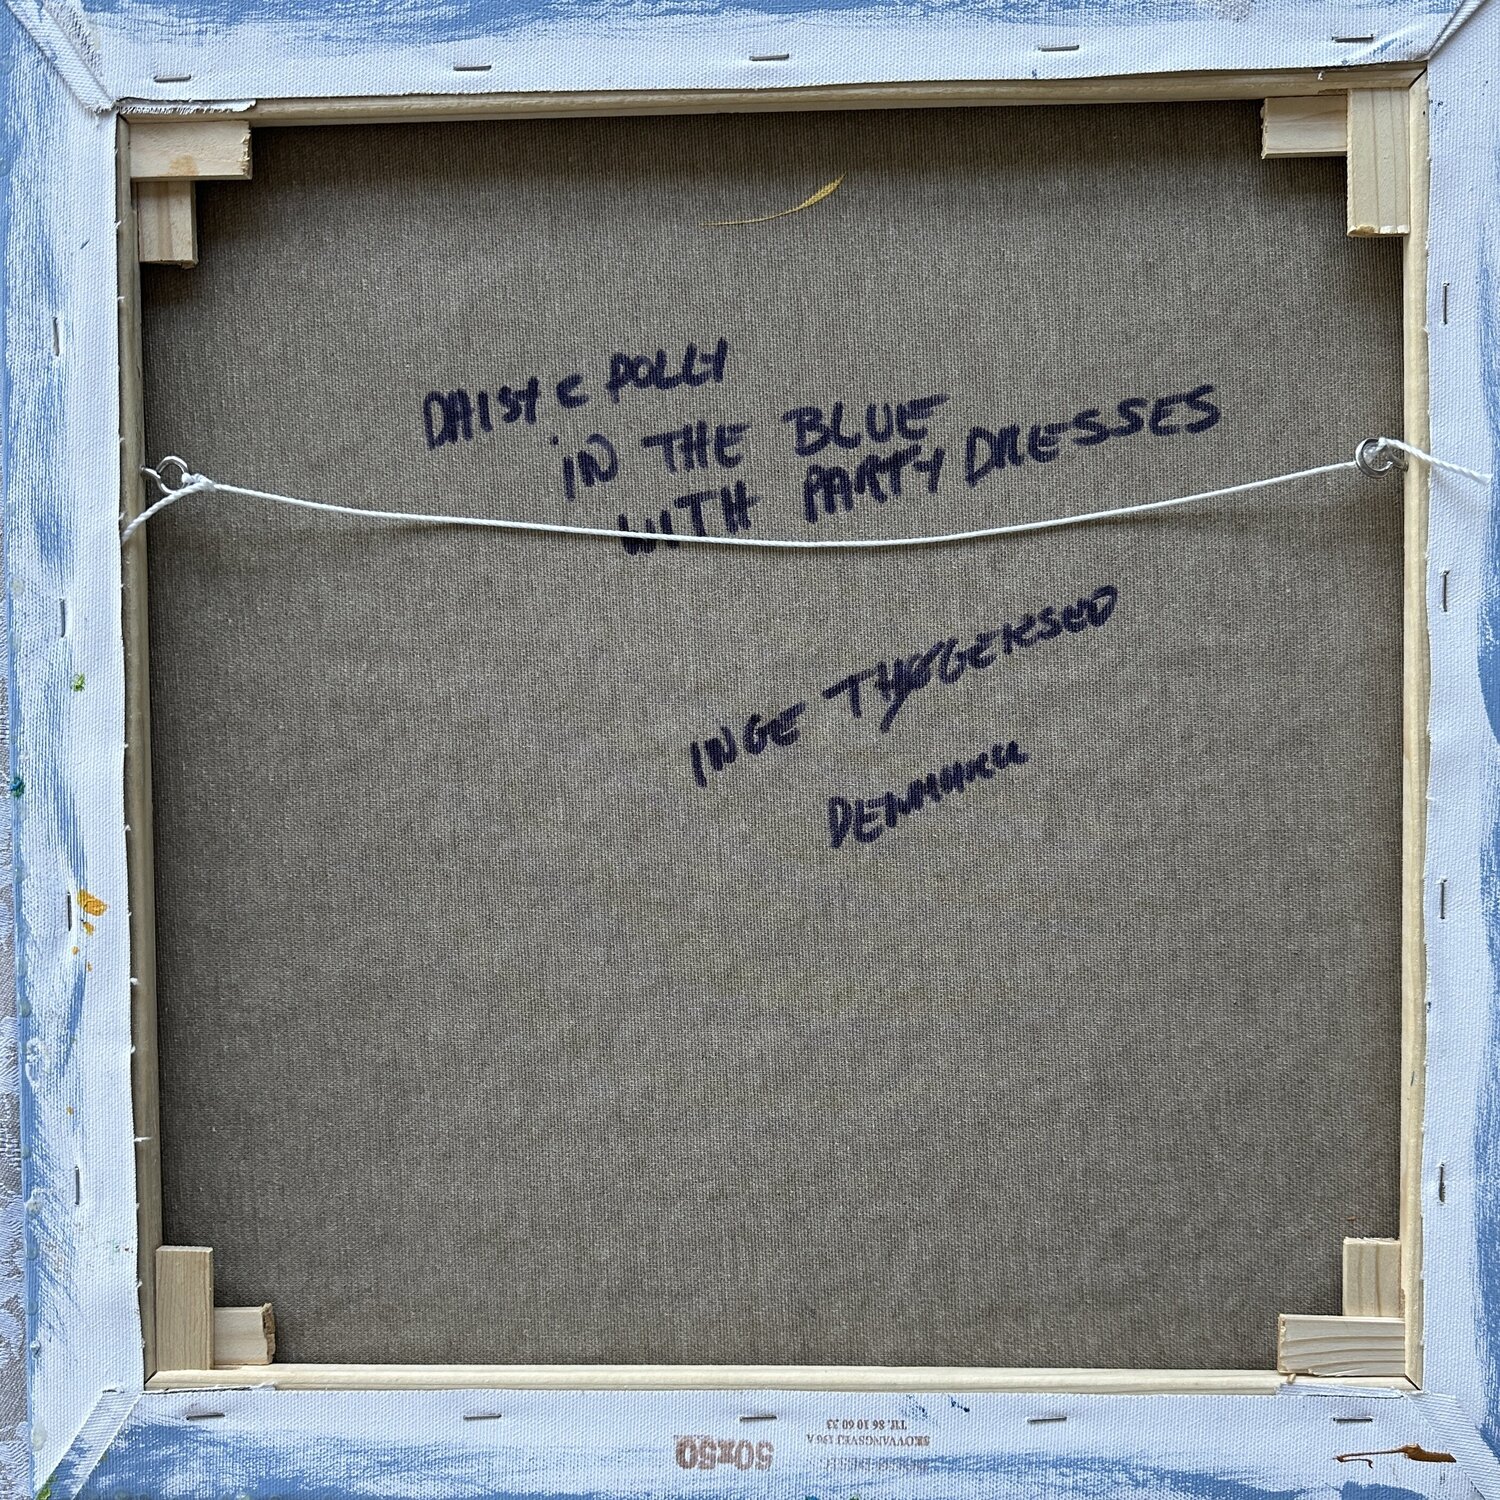 DAISY & POLLY
IN THE BLUE
WITH PARTY DRESSES
INGE THØGERSEN
DENMARK
50x50
SKOVVANGSVEJ 196 A
Tlf. 86 10 60 33